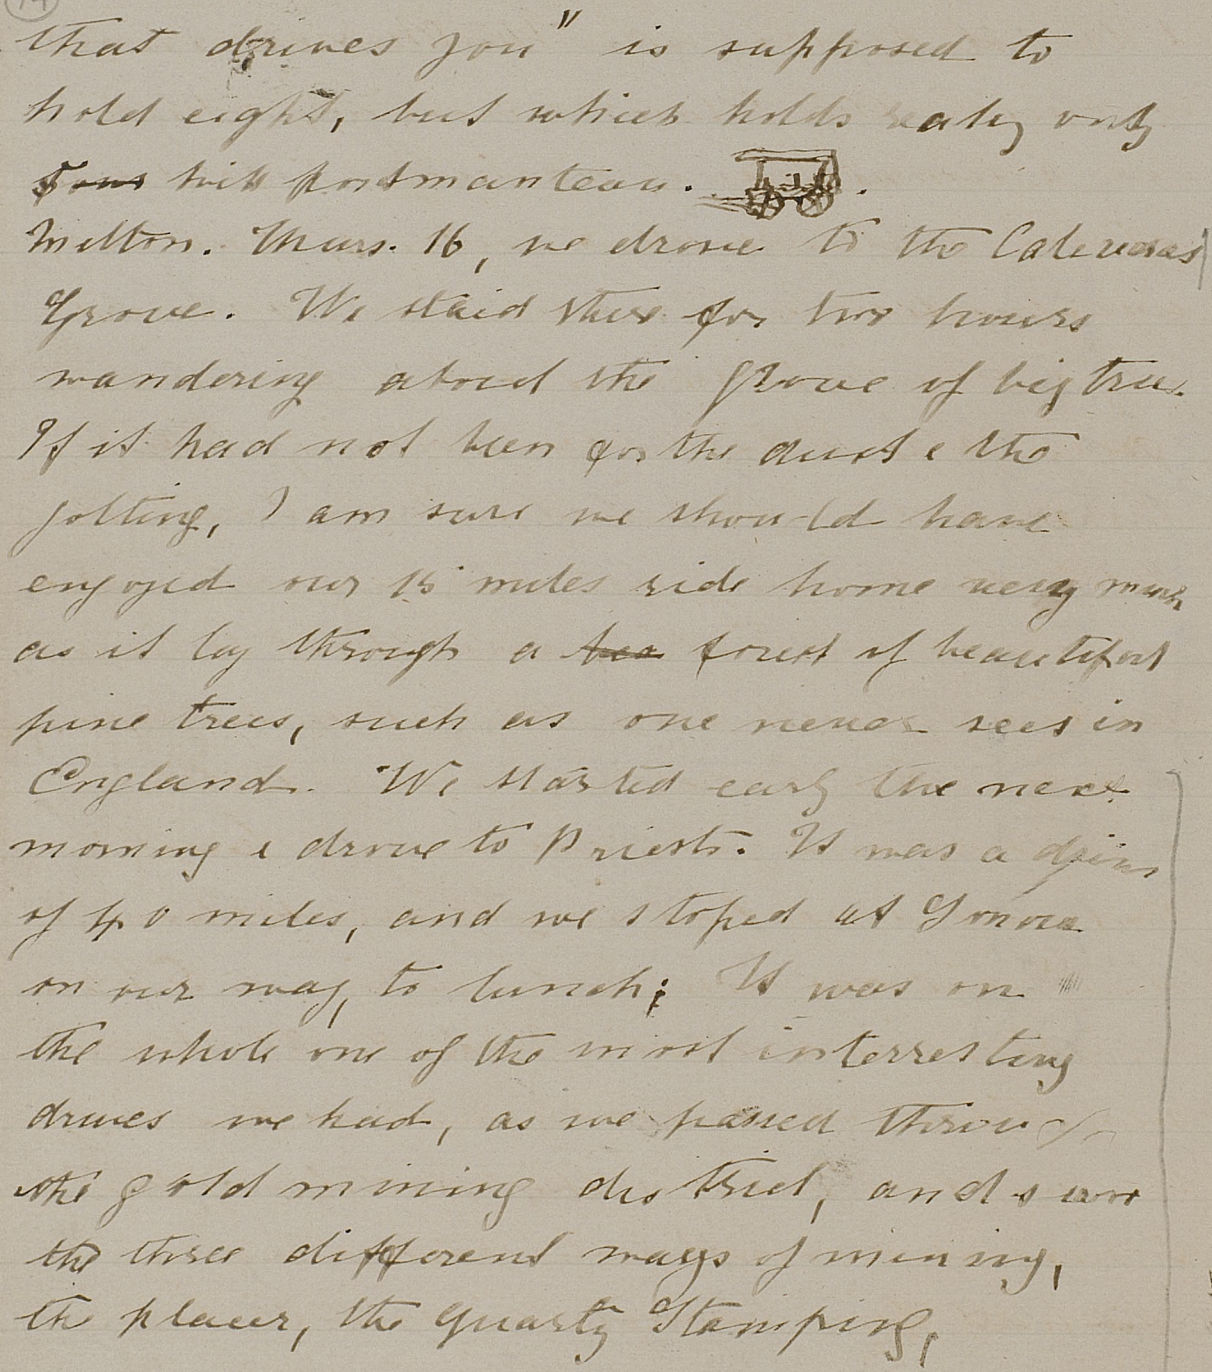 that drives you" is supposed to
hold eight, but which holds realy only
four with portmanteau.
Milton. Thurs. 16, we drove to the Caleveras
Grove. We staid there for two hours
wandering about the grove of big trees.
If it had not been for the dust & the
jolting, I am sure we should have
enjoyed our 15 miles ride home very much
as it lay through a forest of beautiful
pine trees, such as one never sees in
England. We started early the next
morning & drove to Priests. It was a drive
of 40 miles, and we stoped at Sonora
on our way, to lunch; It was on
the whole one of the most interresting
drives we had, as we passed through
the gold mining district, and saw
the three different ways of mining,
the placer, the quartz Stamping,